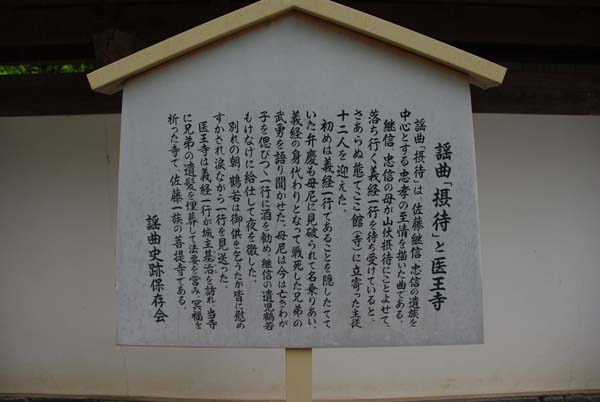 謡曲「摂待」と医王寺
謡曲「摂待」は、佐藤継信・忠信の遺族を
中心とする忠孝の至情を描いた曲である。
継信、忠信の母が山伏摂待にことよせて、
落ち行く義経一行を待ち受けていると、
さあらぬ態でここ館(寺)に立寄った主従
十二人を迎えた。
初めは義経一行であることを隠したてて
いた弁慶も母尼に見破られて名乗りあい、
義経の身代わりとなって戦死した兄弟の
武勇を語り聞かせた。母尼は今は亡きわが
子を偲びつつ一行に酒を勧め、継信の遺児鶴若
もけなげに給仕して夜を徹した。
別れの朝、鶴若は御供を乞うたが皆に慰め
すかされ涙ながら一行を見送った。
医王寺は義経一行が城主基治を訪れ、当寺
に兄弟の遺髪を埋葬して法要を営み、冥福を
祈った寺で、佐藤一族の菩提寺である。
謡曲史跡保存会